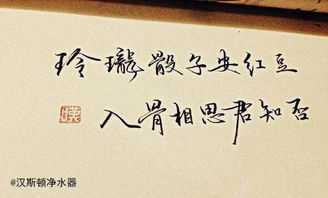 玲瓏骰子安红豆
入骨相思君知否
@汉斯顿净水器